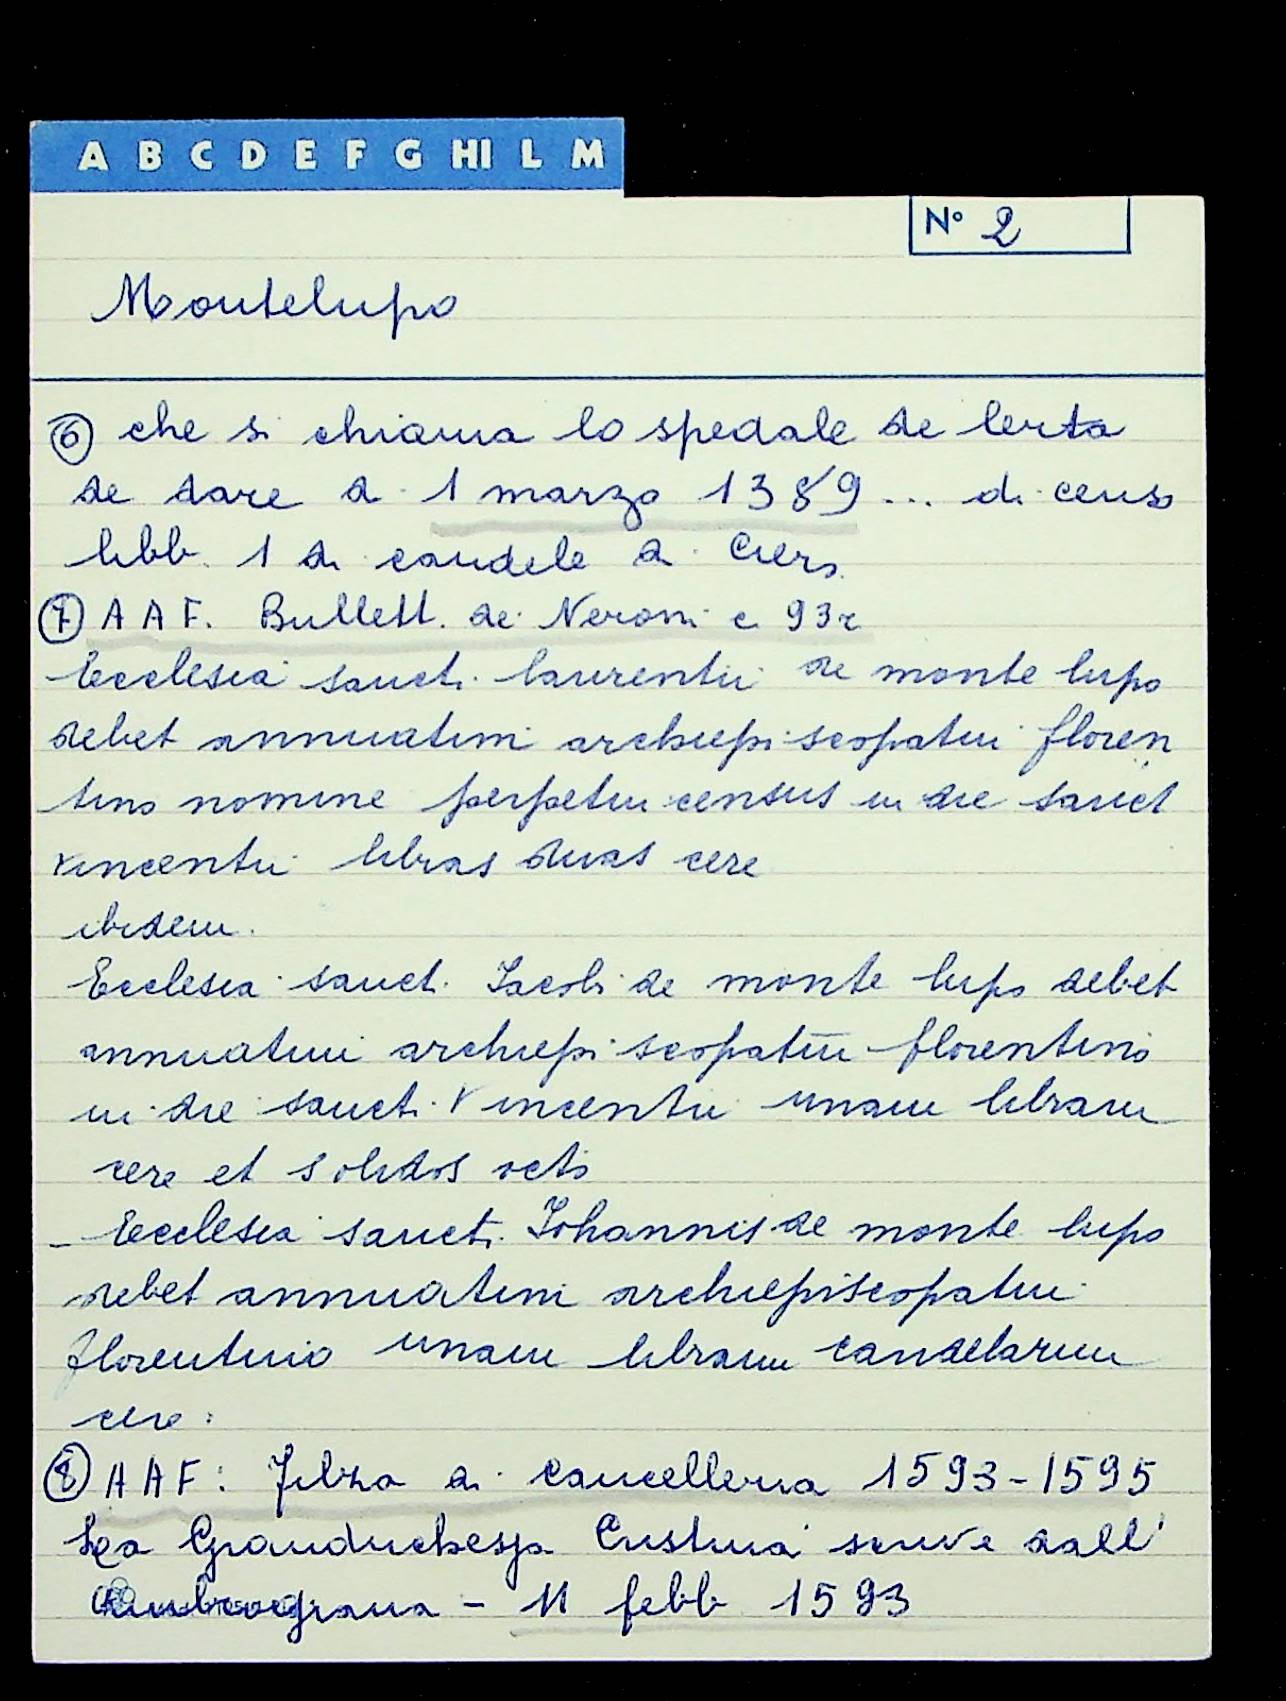 A B C D E F G HI L M
N° 2
Montelupo
⑥ che si chiama lo spedale de lerta
de dare a 1 marzo 1389 ... di censo
libb. 1 di candele di cera
⑦ A A F. Bullett. de Neroni c 93r
Ecclesia sancti laurentii de monte lupo
debet annuatim archiepiscopatui floren
tino nomine perpetui census in die sancti
vincentii libras duas cere
ibidem.
Ecclesia sancti Iacobi de monte lupo debet
annuatim archiepiscopatui florentino
in die sancti Vincentii unam libram
cere et solidos octo
- Ecclesia sancti Iohannis de monte lupo
debet annuatim archiepiscopatui
florentino unam libram candelarum
cere:
⑧ A A F: Filza di cancelleria 1593-1595
La Granduchessa Cristina scrive dall'
Ambrogiana - 11 febb 1593